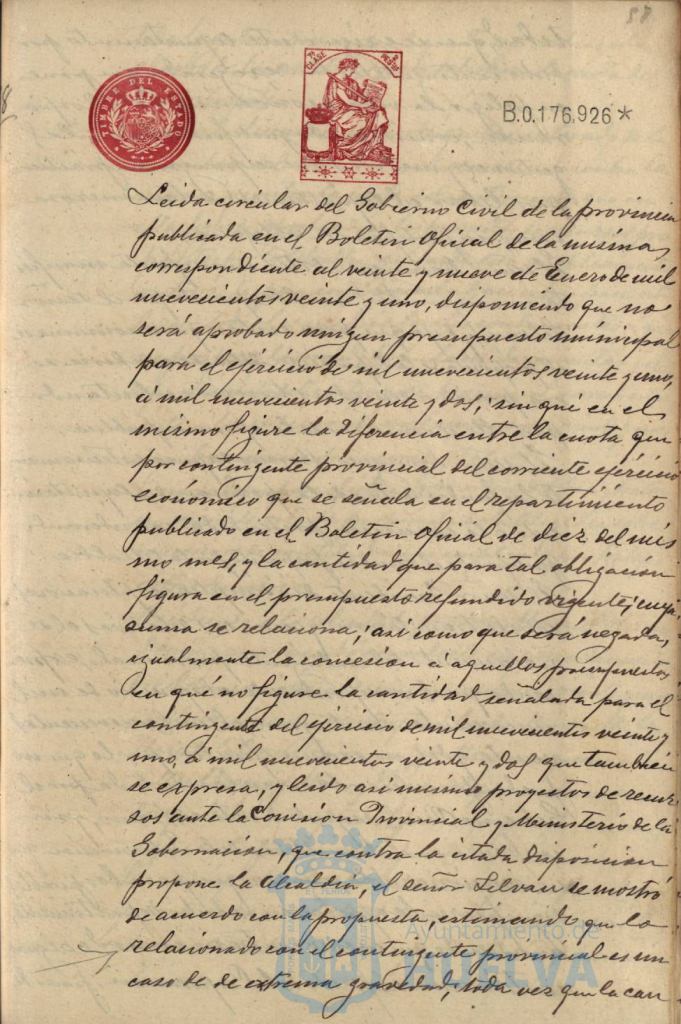 58
TIMBRE DEL ESTADO
7ª CLASE
PESETAS
B.0.176.926*
Leida circular del Gobierno Civil de la provincia
publicada en el Boletin Oficial de la misma,
correspondiente al veinte y nueve de Enero de mil
nuevecientos veinte y uno, disponiendo que no
será aprobado ningun presupuesto municipal
para el ejercicio de mil nuevecientos veinte y uno,
á mil nuevecientos veinte y dos; sin que en el
mismo figure la diferencia entre la cuota que
por contingente provincial del corriente ejercicio
económico que se señala en el repartimiento
publicado en el Boletin Oficial de diez del mis
mo mes, y la cantidad que para tal obligación
figura en el presupuesto refundido vigente; cuya
suma se relaciona; asi como que será negada,
igualmente la concesion á aquellos presupuestos
en qué no figure la cantidad señalada para el
contingente del ejercicio de mil nuevecientos veinte y
uno, á mil nuevecientos veinte y dos que tambien
se expresa, y leido asi mismo proyectos de recur
sos ante la Comision Provincial y Ministerio de la
Gobernación, que contra la citada disposicion
propone la Alcaldía, el señor Selvan se mostró
de acuerdo con la propuesta, estimando que lo
relacionado con el contingente provincial es un
caso de de extrema gravedad, toda vez que la can
Ayuntamiento de
HUELVA